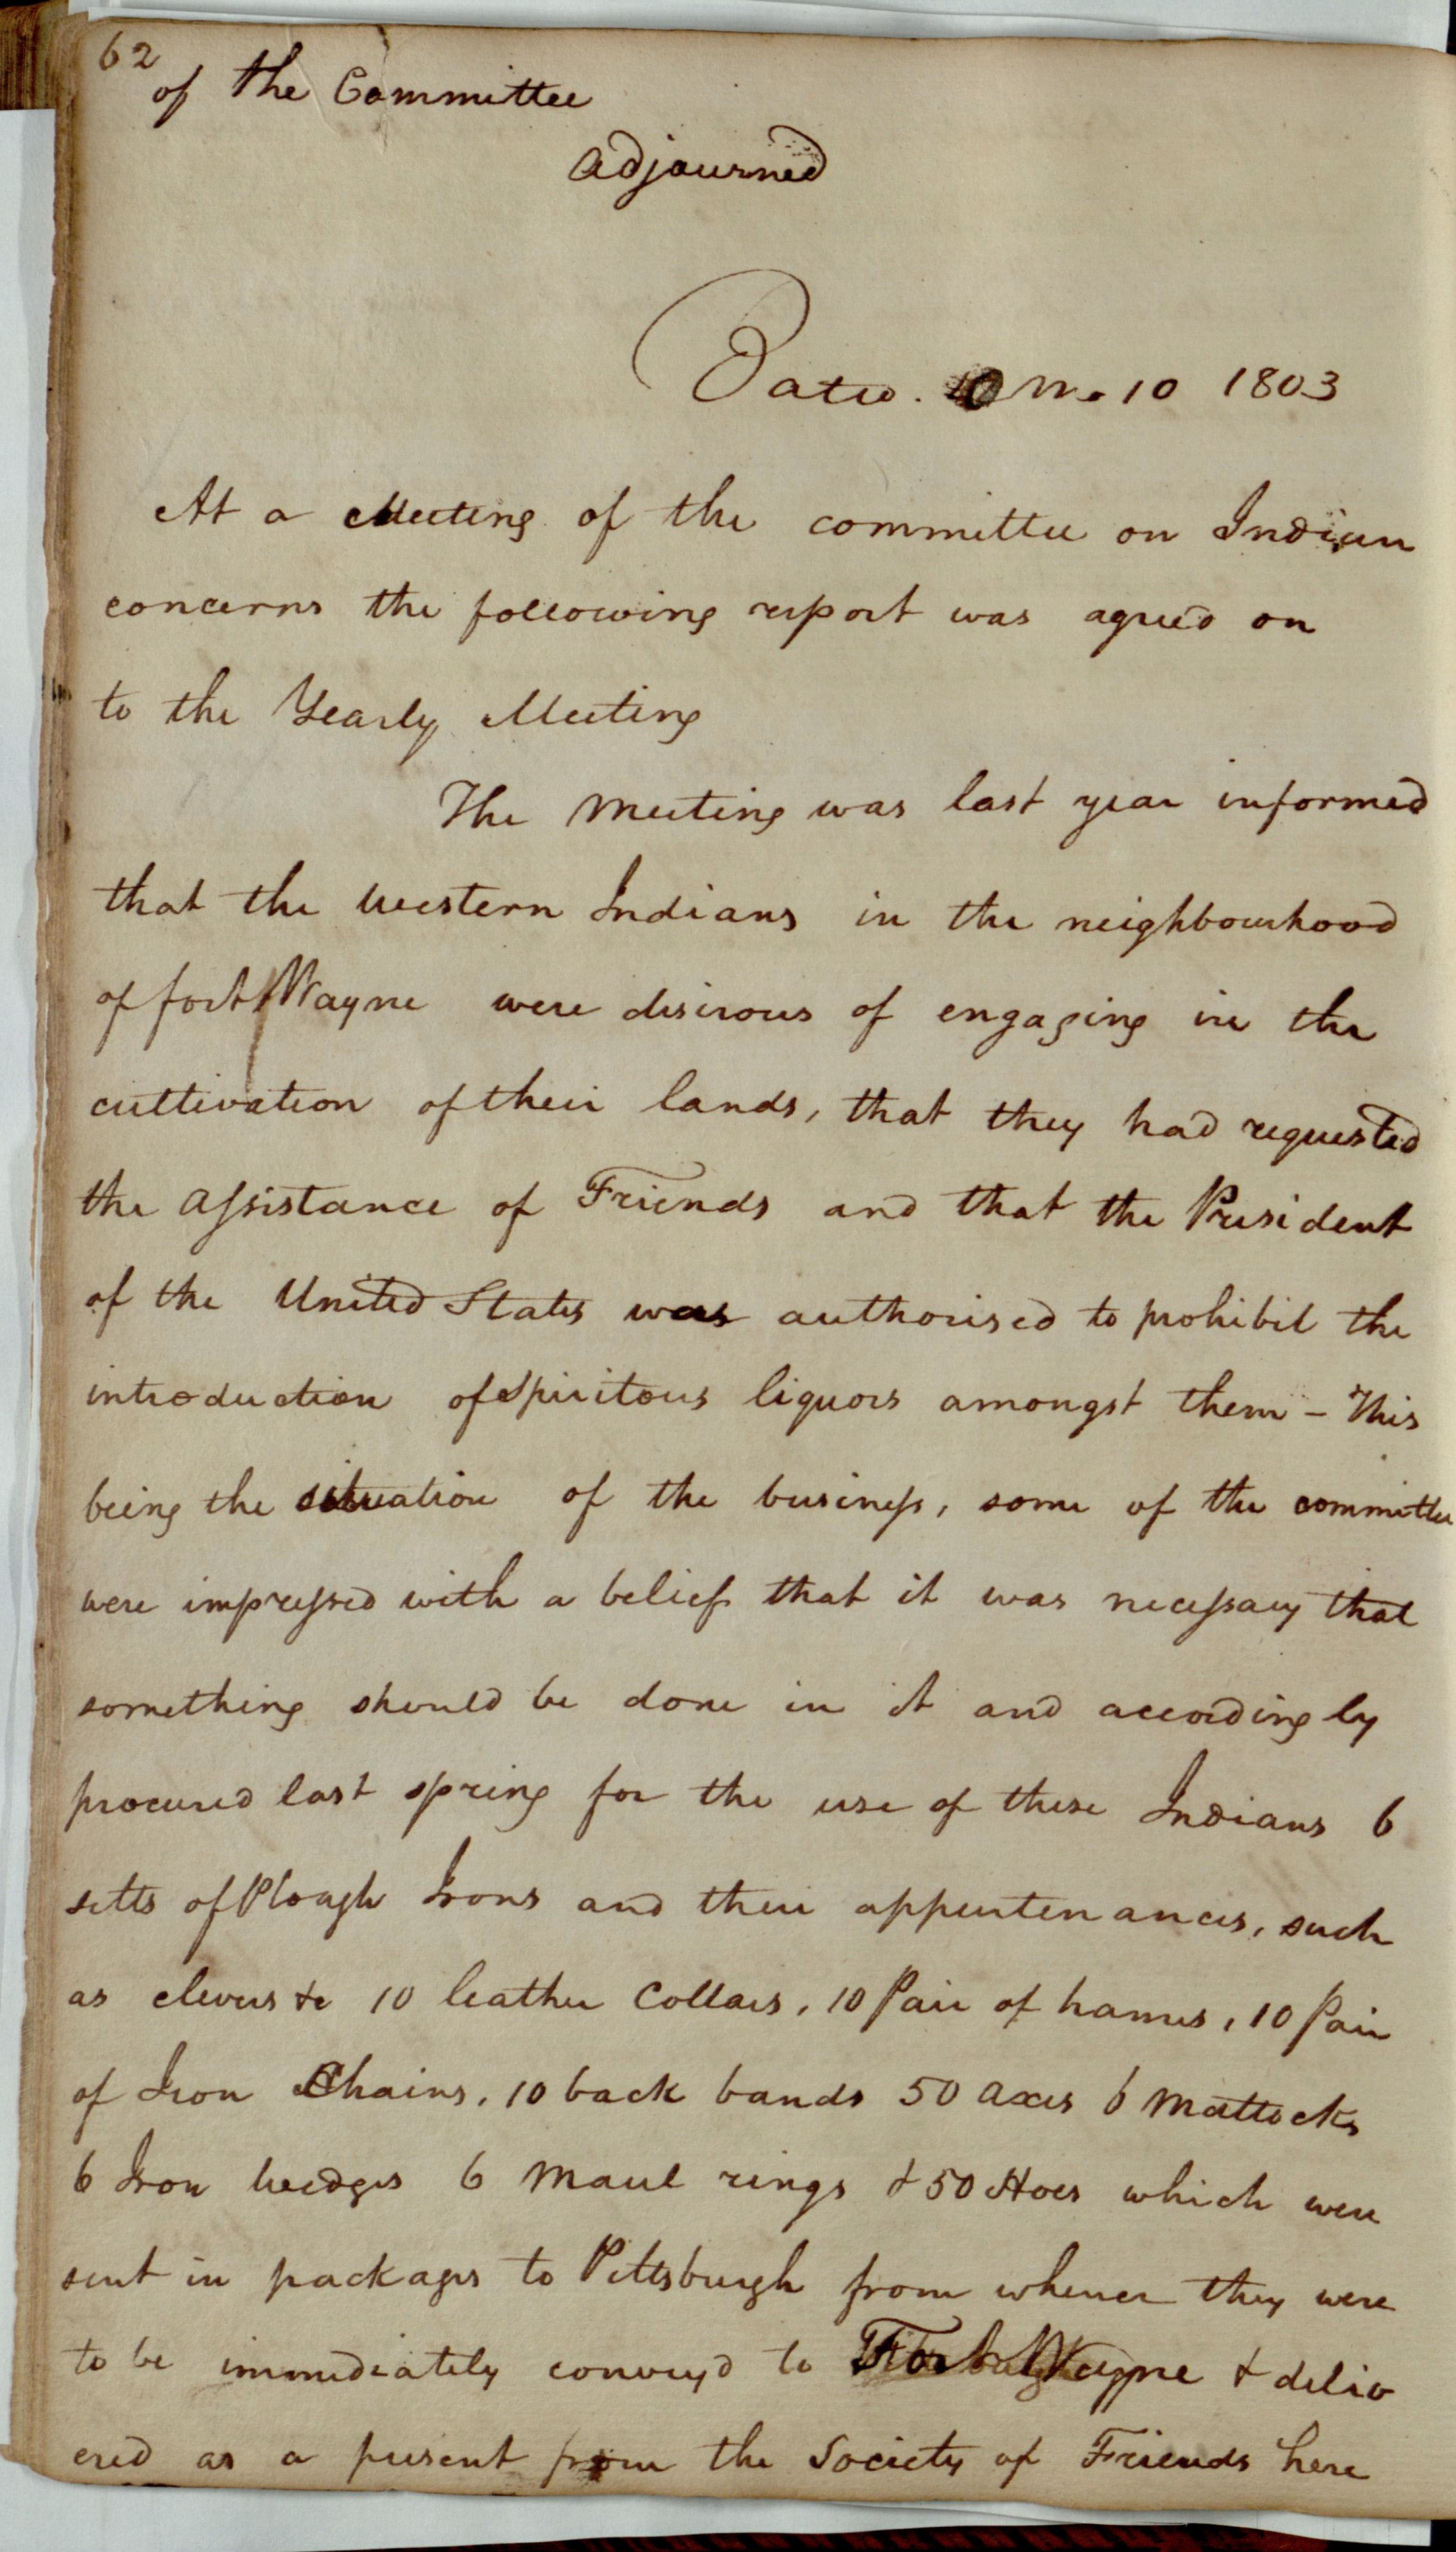 62
of the Committee
adjourned
Dated. 10 Mo 10 1803
At a Meeting of the committee on Indian
concerns the following report was agreed on
to the Yearly Meeting
The Meeting was last year informed
that the Western Indians in the neighbourhood
of fort Wayne were desirous of engaging in the
cultivation of their lands, that they had requested
the assistance of Friends and that the President
of the United States was authorised to prohibit the
introduction of Spiritous liquors amongst them - This
being the situation of the business, some of the committee
were impressed with a belief that it was necessary that
something should be done in it and accordingly
procured last spring for the use of these Indians 6
setts of Plough Irons and their appurtenances, such
as clevers &c 10 leather Collars, 10 Pair of hames, 10 Pair
of Iron Chains, 10 back bands 50 axes 6 Mattocks
6 Iron Wedges 6 Maul rings & 50 Hoes which were
sent in packages to Pittsburgh from whence they were
to be immediately convey'd to Fort Wayne & deliv
ered as a present from the Society of Friends here